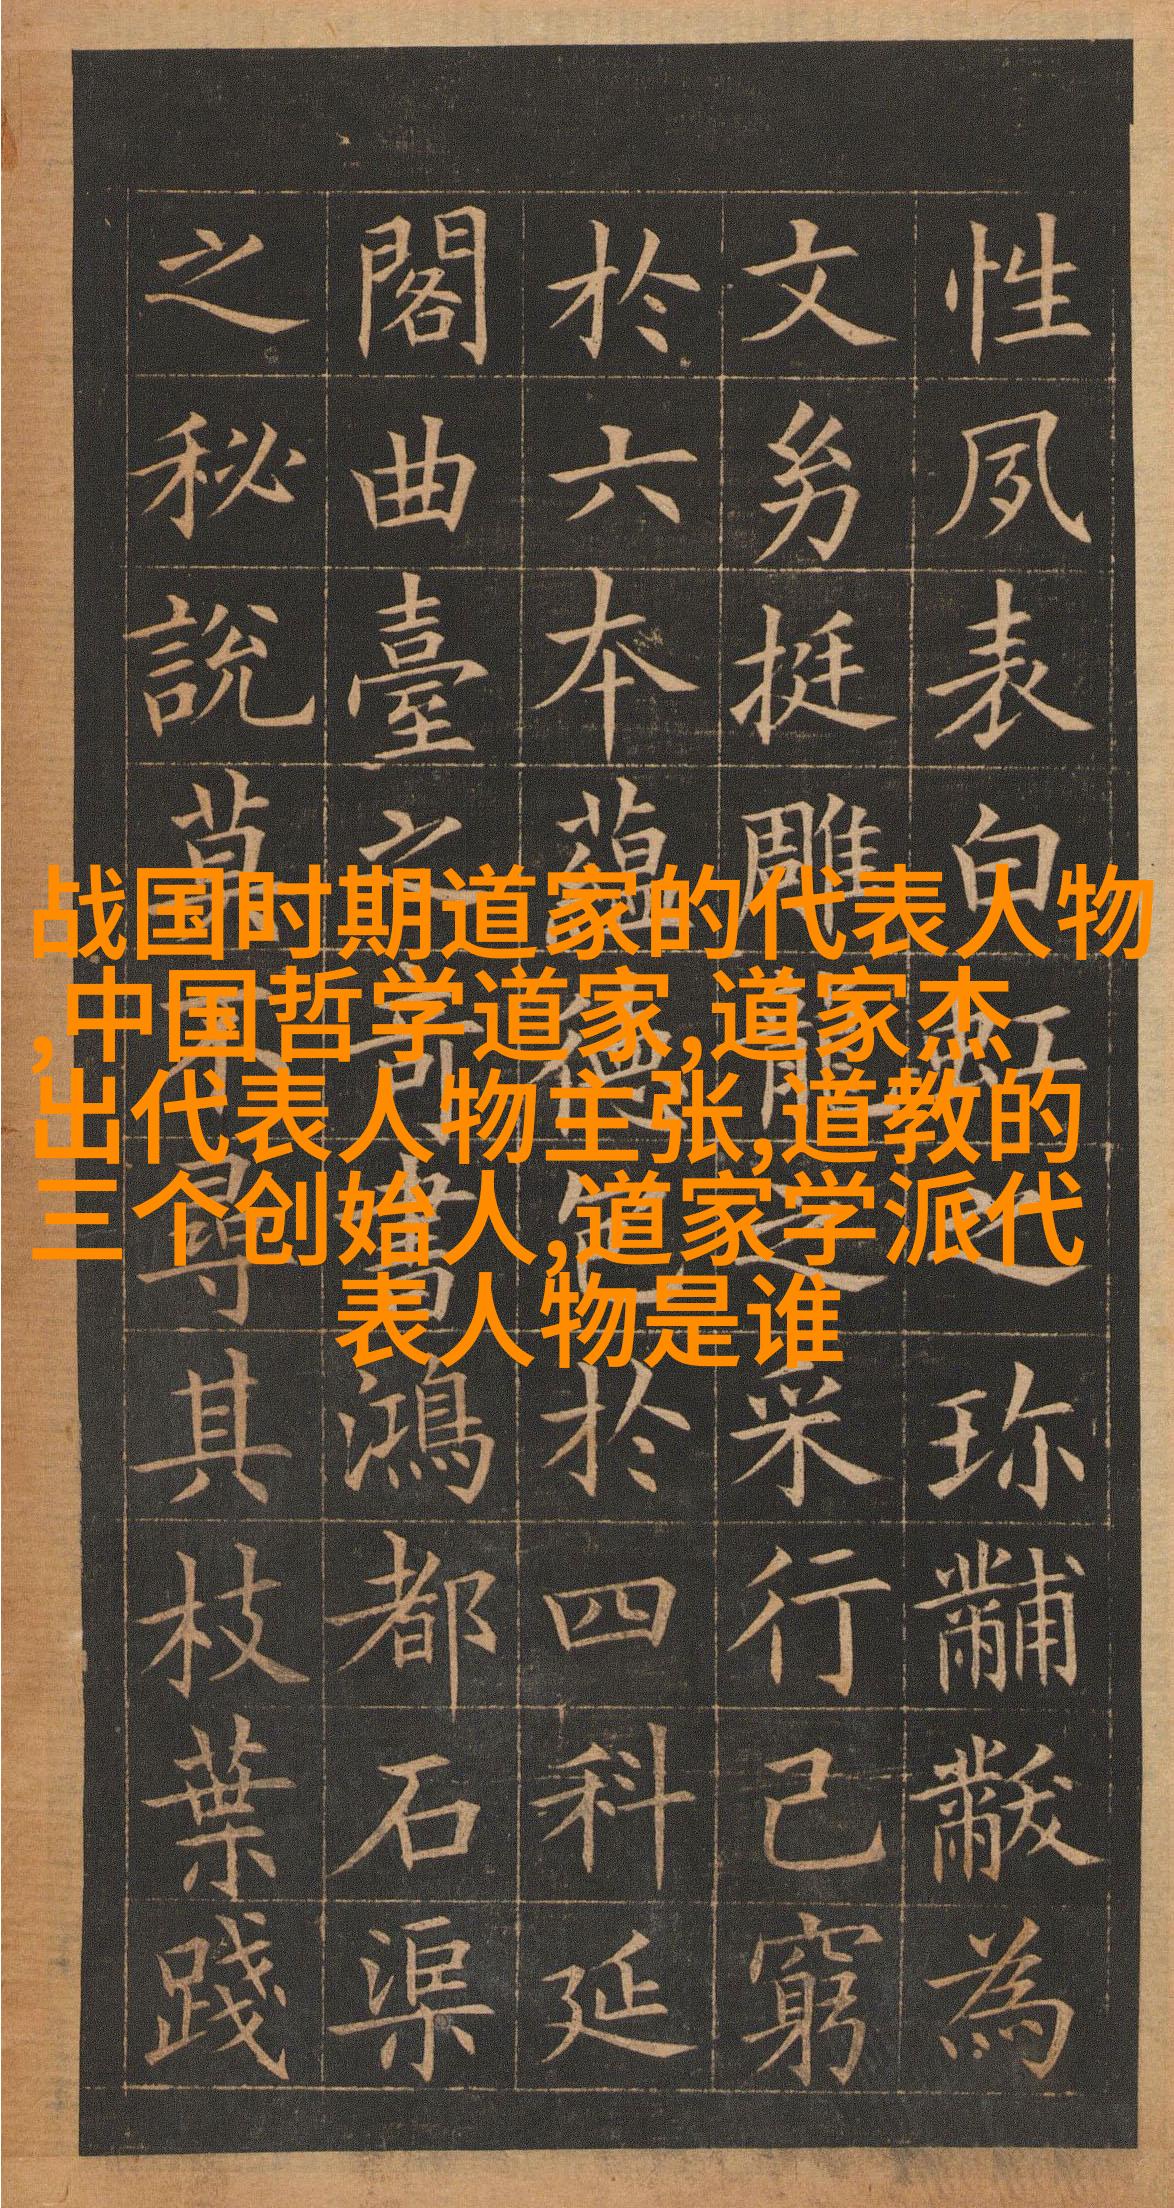 性夙表白虹之珍黼黻為
文㓜挺雕龍之采行己窮
於六本蘊德包於四科延
閣曲臺之奇書鴻都石渠
之秘說莫不尋其枝葉踐
战国时期道家的代表人物
,中国哲学道家,道家杰
出代表人物主张,道教的
三个创始人,道家学派代
表人物是谁